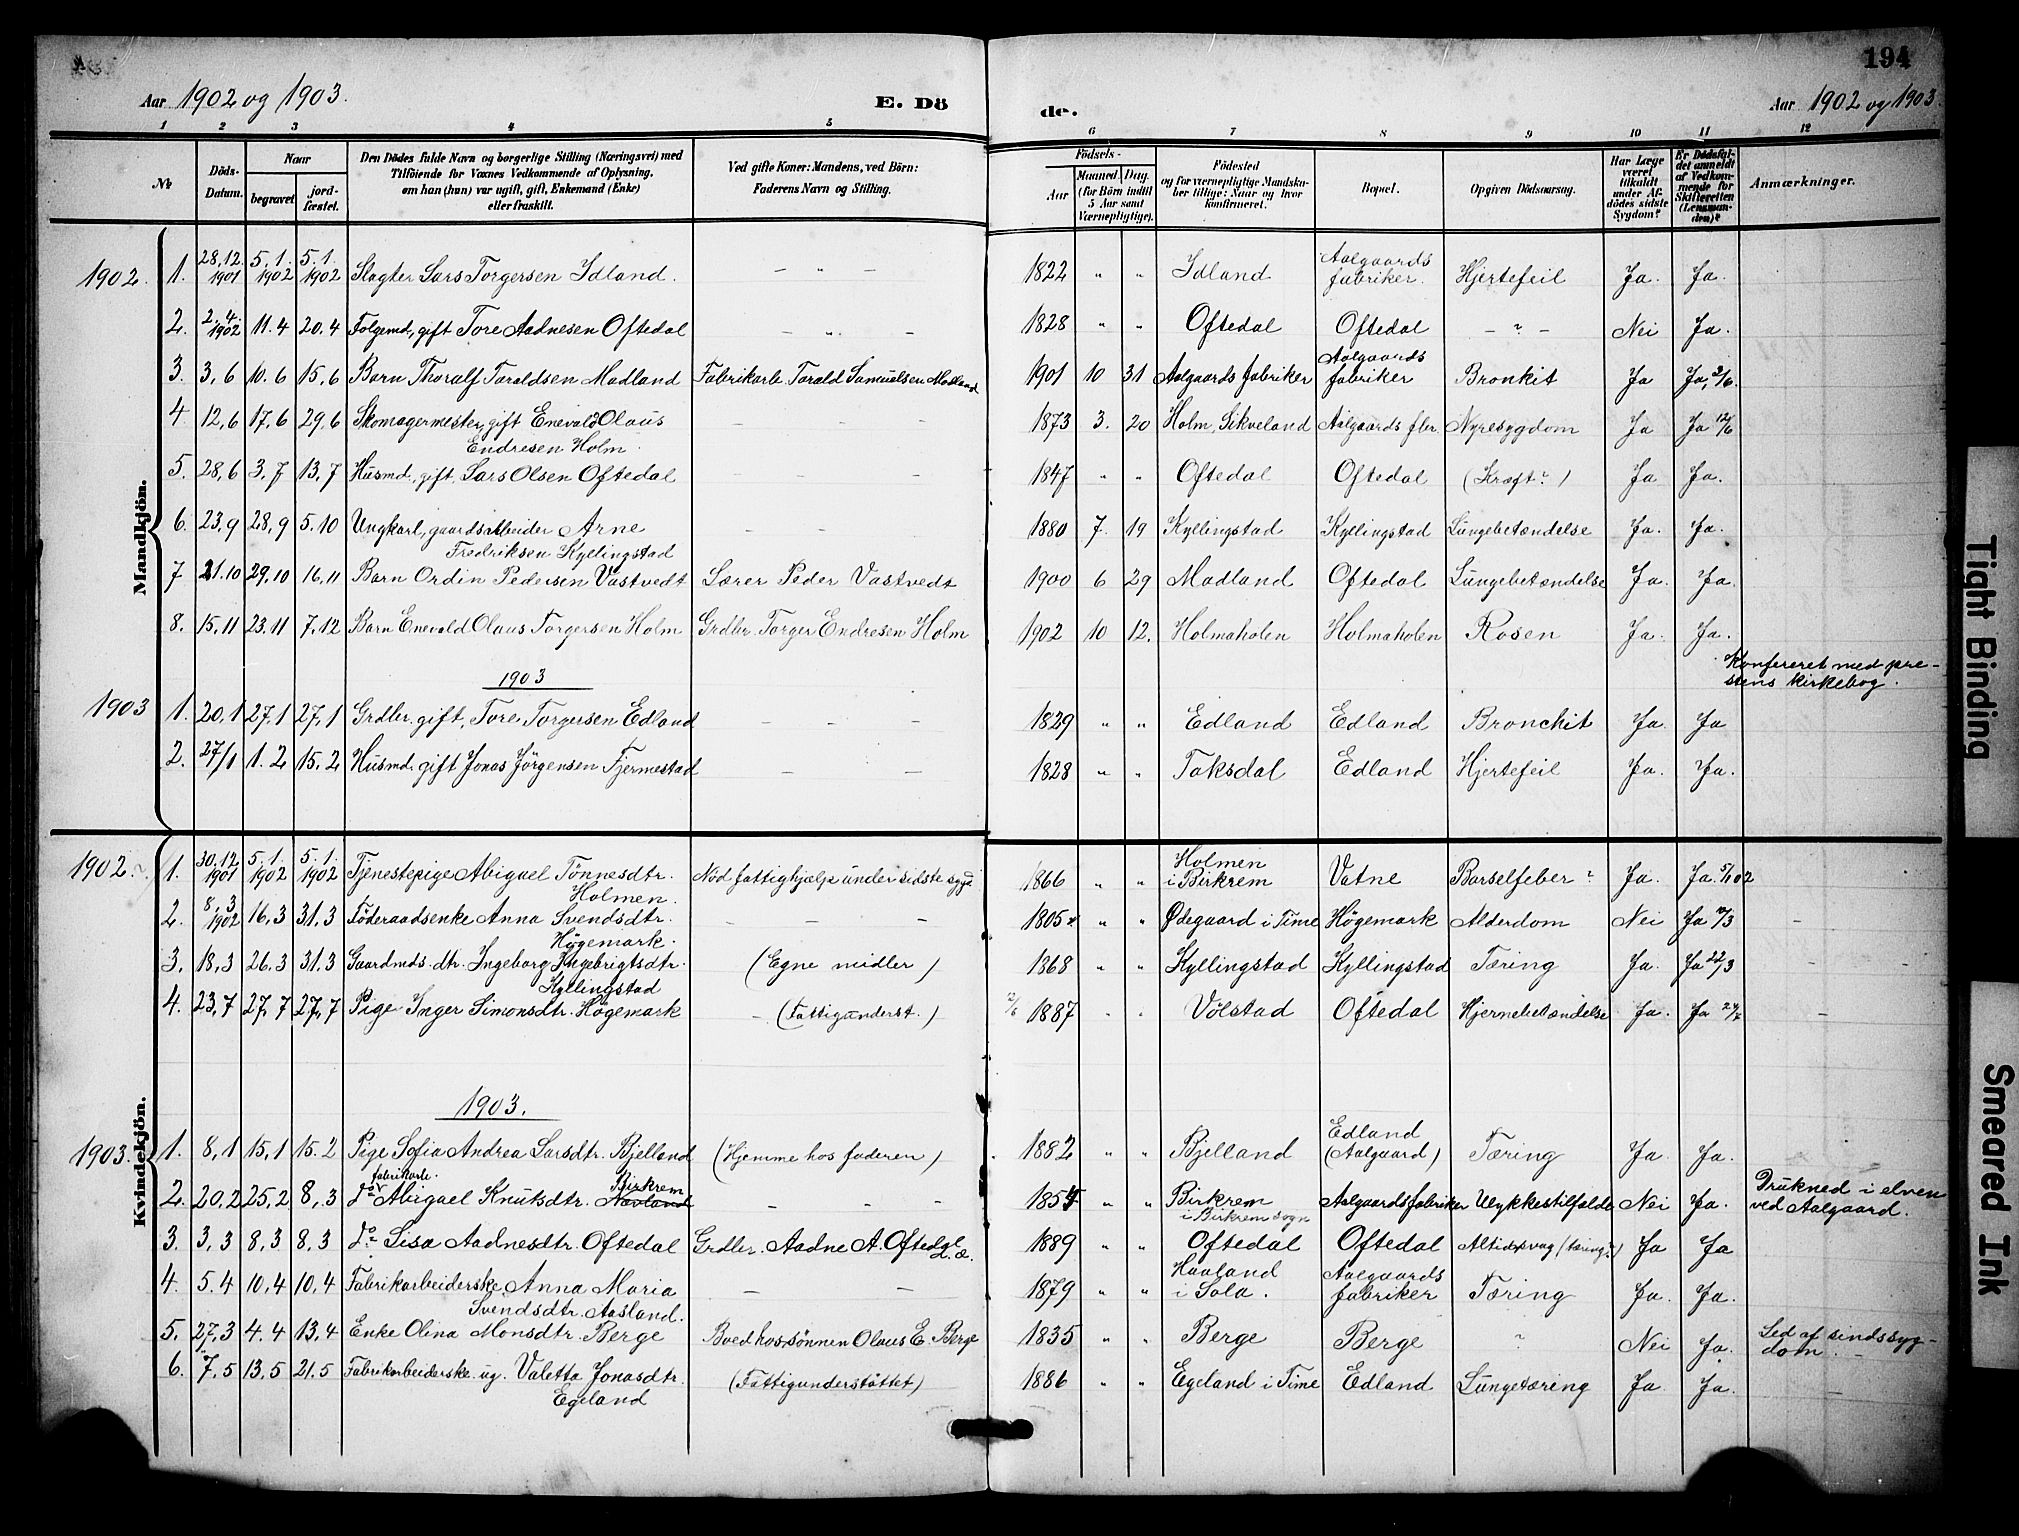 194
Aar 1902 og 1903. E. Dö de. Aar 1902 og 1903.
1 2 3 4 5 6 7 8 9 10 11 12
№ Döds-Datum. Naar begravet jordfæstet. Den Dödes fulde Navn og borgerlige Stilling (Næringsvei) med Tilföiende for Voxnes Vedkommende af Oplysning, om han (hun) var ugift, gift, Enkemand (Enke) eller fraskilt. Ved gifte Koner: Mandens, ved Börn: Faderens Navn og Stilling. Födsels- Aar Maaned. Dag. (for Börn indtil 5 Aar samt Værnepligtige). Födested og for værnepligtige Mandskaber tillige: Naar og hvor konfirmeret. Bopæl. Opgiven Dödsaarsag. Har Læge været tilkaldt under Afdödes sidste Sygdom? Er Dödsfaldet anmeldt af Vedkommende for Skifteretten (Lensmanden)? Anmærkninger.
Mandkjön.
1902. 1. 28.12. 1901 5.1. 1902 5.1. 1902 Slagter Lars Torgersen Idland. – „ – 1822 „ „ Idland Aalgaards fabriker. Hjertefeil Ja. Ja.
2. 2.4. 1902 11.4 20.4 Folgemd, gift Tore Aadnesen Oftedal – „ – 1828 „ „ Oftedal Oftedal – „ – Nei Ja.
3. 3,6 10.6 15,6 Barn Thoralf Taraldsen Madland Fabrikarb. Tarald Samuelsen Madland 1901 10 31 Aalgaards fabriker Aalgaards fabriker Bronkit Ja Ja, 3/6.
4 12,6 17,6 29,6 Skomagermester, gift Enevald Olaus Endresen Holm. – – 1873 3. 20 Holm, Sikveland Aalgaards fbr. Nyresygdom Ja Ja 12/6
5. 28,6 3.7 13,7 Husmd., gift, Lars Olsen Oftedal – – 1847 „ „ Oftedal Oftedal (Kræft?) Ja Ja.
6. 23,9 28,9 5.10 Ungkarl, gaardsarbeider Arne Fredriksen Kyllingstad – – 1880 7. 19 Kyllingstad Kyllingstad Lungebetændelse Ja. Ja.
7 21.10 29,10 16,11 Barn Ordin Pedersen Vastvedt Lærer Peder Vastvedt 1900 6 29 Madland Oftedal Lungebetændelse Ja. Ja.
8. 15,11 23.11 7,12 Barn Enevald Olaus Torgersen Holm Grdbr. Torger Endresen Holm 1902 10 12. Holmaholen Holmaholen Rosen Ja. Ja.
1903
Konfereret med prestens kirkebog.
1903 1. 20,1 27,1 27,1 Grdbr. gift, Tore Torgersen Edland – – 1829 „ „ Edland Edland Bronchit Ja. Ja
2. 27/1 1.2 15.2 Husmd. gift Jonas Jörgensen Tjermestad – – 1828 „ „ Taksdal Edland Hjertefeil Ja. Ja.
Kvindekjön.
1902. 1. 30.12 1901 5.1. 1902 5.1. 1902 Tjenestepige Abigael Tönnesdtr. Holmen. Nöd fattighjælp under sidste sygd. 1866 „ „ Holmen i Birkrem Vatne Barselfeber? Ja. Ja. 5/1 02
2. 8,3 1902 16,3 31.3 Föderaadsenke Anna Svendsdtr. Högemark. – – – 1805 „ „ Ødegaard i Time Högemark Alderdom Nei Ja –
3. 18,3 26.3 31.3 Gaardmds. dtr. Ingeborg Ingebrigtsdtr. Kyllingstad (Egne midler) 1868 „ „ Kyllingstad Kyllingstad Tæring Ja. Ja 22/3 –
4. 23,7 27,7 27,7 Pige Inger Simonsdtr. Högemark – (Fattigunderst.) 2/6 1887 „ „ Völstad Oftedal Hjernebetændelse Ja. Ja 24/7 –
1903.
1903. 1. 8,1 15,1 15.2 Pige Sofia Andrea Larsdtr. Bjelland (Hjemme hos faderen) 1882 „ „ Bjelland Edland (Aalgaard) Tæring Ja. Ja.
2. 20,2 25,2 8,3 fabrikarb. do Abigael Knutsdtr. Navland Birkrem – – 1854 „ „ Birkrem i Birkrem sogn Aalgaards fabriker Ulykkestilfælde Nei Ja. Drukned i elven ved Aalgaard.
3. 3,3 8,3 8,3 do Lisa Aadnesdtr. Oftedal Grdbr. Aadne A. Oftedal d.æ. 1889 „ „ Oftedal Oftedal Altid svag (tæring?) Ja Ja
4. 5.4 10,4 10,4 Fabrikarbeiderske Anna Maria Svendsdtr. Aasland. – – 1879 „ „ Haaland i Sola. Aalgaards fabriker Tæring Ja. Ja.
5. 27,3 4.4 13,4 Enke Olina Monsdtr. Berge Boed hos sönnen Olaus E. Berge 1835 „ „ Berge Berge ? Nei Ja. Led af sindssygdom. –
6. 7,5 13,5 21.5 Fabrikarbeiderske. ug. Valetta Jonasdtr. Egeland (Fattigunderstöttet) 1886 „ „ Egeland i Time Edland Lungetæring Ja. Ja. –
Tight Binding
Smeared Ink